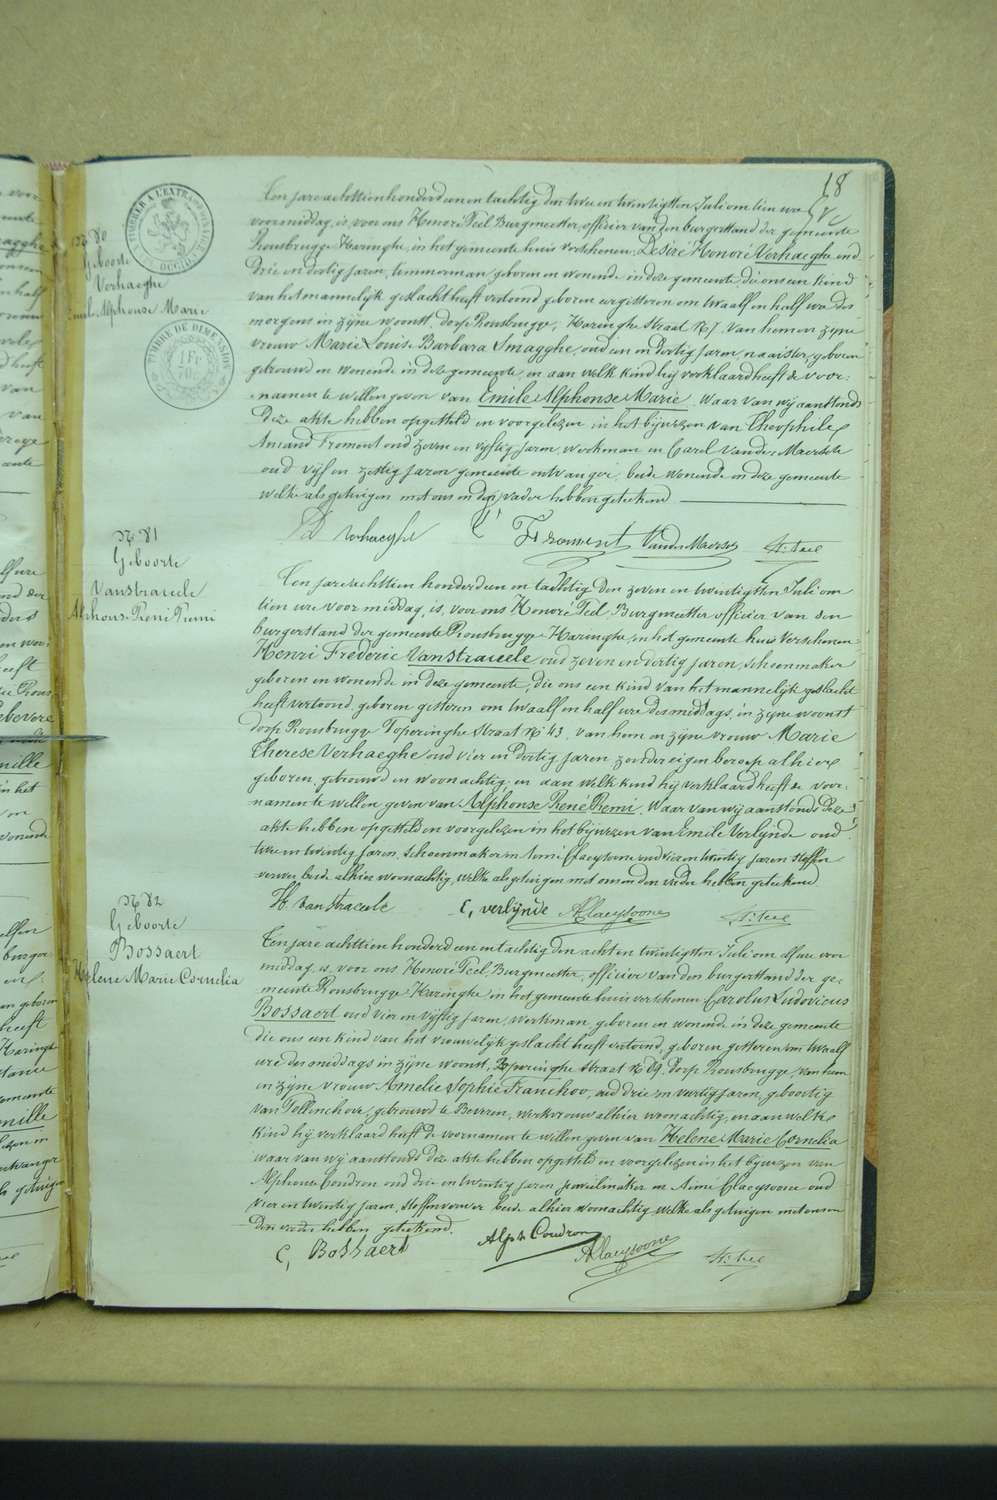 18
Ten jare achttien honderd een en tachtig den twee en twintigsten Juli om tien ure
voormiddag, is, voor ons Honoré Teel Burgmeester, officier van den burgerstand der gemeente
Rousbrugge Haringhe, in het gemeente huis verschenen: Desiré Honoré Verhaeghe oud
drie en dertig jaren, timmerman geboren en wonende in deze gemeente, die ons een kind
van het mannelijk geslacht heeft vertoond, geboren eergisteren om twaalf en half ure des
morgens in zijne woonst, dorp Rousbrugge, Haringhe straat No 7 van hem en zijne
vrouw Marie Louise Barbara Smagghe, oud een en dertig jaren, naaister, geboren
getrouwd en wonende in deze gemeente, en aan welk kind hij verklaard heeft de voor-
namen te willen geven van Emile Alphonse Marie. Waar van wij aanstonds
deze akte hebben opgesteld en voorgelezen in het bijwezen van Theophile
Amand Froment oud zeven en vijftig jaren, werkman en Carel Vander Meersch
oud vijf en zestig jaren gemeente ontvanger, beide wonende in deze gemeente
welke als getuigen met ons en den vader hebben geteekend
No 80
Geboorte
Verhaeghe
Emile Alphonse Marie
TIMBRE DE DIMENSION
D Verhaeghe T. Froment Vander Meersch H. Teel
No 81
Geboorte
Vanstraceele
Alphonse René Remi
Ten jare achttien honderd een en tachtig den zeven en twintigsten Juli om
tien ure voor middag, is, voor ons Honoré Teel, Burgmeester officier van den
burgerstand der gemeente Rousbrugge Haringhe, in het gemeente huis verschenen
Henri Frederic Vanstraceele, oud zeven en dertig jaren, schoenmaker
geboren en wonende in deze gemeente, die ons een kind van het mannelijk geslacht
heeft vertoond, geboren gisteren om twaalf en half ure des middags, in zijne woonst
dorp Rousbrugge Poperinghe straat No 43, van hem en zijne vrouw Marie
Therese Verhaeghe oud vier en dertig jaren zonder eigen beroep alhier
geboren, getrouwd en woonachtig, en aan welk kind hij verklaard heeft de voor-
namen te willen geven van Alphonse René Remi. Waar van wij aanstonds deze
akte hebben opgesteld en voorgelezen in het bijwezen van Emile Verlynde oud
twee en twintig jaren, schoenmaker en Aimé Claeysoone oud vier en twintig jaren stoffen
verwer beide alhier woonachtig, welke als getuigen met ons en den vader hebben geteekend
H. Vanstraceele E, verlijnde A Claeysoone H. Teel
No 82
Geboorte
Bossaert
Helene Marie Cornelia
Ten jare achttien honderd een en tachtig den acht en twintigsten Juli om elf ure voor
middag, is, voor ons Honoré Teel, Burgmeester, officier van den burgerstand der ge-
meente Rousbrugge Haringhe in het gemeente huis verschenen Carolus Ludovicus
Bossaert oud vier en vijftig jaren, werkman, geboren en wonende in deze gemeente
die ons een kind van het vrouwelijk geslacht heeft vertoond, geboren gisteren om twaalf
ure des middags in zijne woonst, Poperinghe straat No 69, dorp Rousbrugge, van hem
en zijne vrouw Amelie Sophie Franchoo, oud drie en veertig jaren, geboortig
van Pollinchove, getrouwd te Beveren, werkvrouw alhier woonachtig, en aan welk
kind hij verklaard heeft de voornamen te willen geven van Helene Marie Cornelia
waar van wij aanstonds deze akte hebben opgesteld en voorgelezen in het bijwezen van
Alphonse Coudron oud drie en twintig jaren en Aimé Claeysoone oud
vier en twintig jaren, stoffenverwer beide alhier woonachtig welke als getuigen met ons en
den vader hebben geteekend.
C, Bossaert Alph Coudron A Claeysoone H. Teel